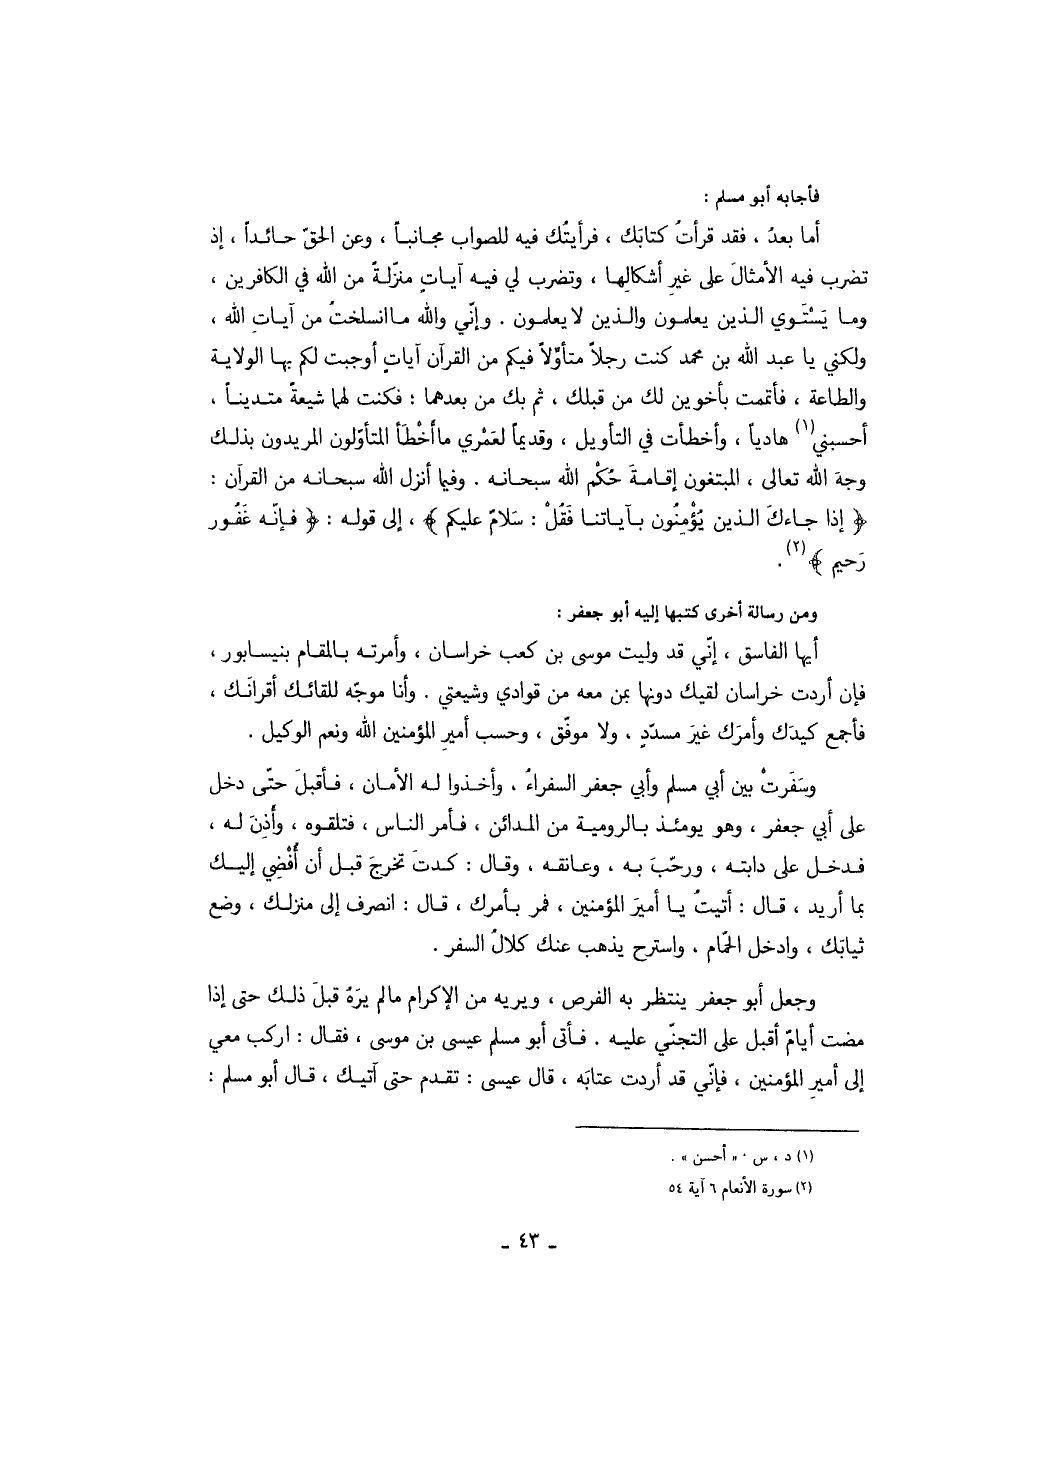 فأجابه أبو مسلم :
أما بعدُ ، فقد قرأتُ كتابَك ، فرأيتُك فيه للصواب مجانباً ، وعن الحقّ حائداً ، إذ
تضرب فيه الأمثالَ على غيرِ أشكالِها ، وتضرب لي فيه آياتٍ منزّلةً من الله في الكافرين ،
وما يَسْتَوي الذين يعلمون والذين لايعلمون . وإنّي والله ماانسلختُ من آياتِ الله ،
ولكني يا عبد الله بن محمد كنت رجلاً متأوّلاً فيكم من القرآن آياتٍ أوجبت لكم بها الولاية
والطاعة ، فأتممت بأخوين لك من قبلك ، ثم بك من بعدهما ؛ فكنت لهما شيعةً متديناً ،
أحسبني(١) هادياً ، وأخطأت في التأويل ، وقديماً لعَمْري ماأَخْطَأ المتأوّلون المريدون بذلك
وجهَ الله تعالى ، المبتغون إقامةَ حُكْمِ الله سبحانه . وفيما أنزل الله سبحانه من القرآن :
﴿ إذا جاءكَ الذين يُؤْمِنُون بآياتنا فَقُلْ : سَلامٌ عليكم ﴾ ، إلى قوله : ﴿ فإنّه غَفُور
رَحيم ﴾(٢) .
ومن رسالة أخرى كتبها إليه أبو جعفر :
أيها الفاسق ، إنّي قد وليت موسى بن كعب خراسان ، وأمرته بالمقام بنيسابور ،
فإن أردت خراسان لقيك دونها بمن معه من قوادي وشيعتي . وأنا موجّه للقائك أقرانَك ،
فأجمع كيدَك وأمرَك غيرَ مسدّدٍ ، ولا موفّق ، وحسب أميرِ المؤمنين الله ونعم الوكيل .
وسَفَرتْ بين أبي مسلم وأبي جعفر السفراءُ ، وأخذوا له الأمان ، فأقبلَ حتّى دخل
على أبي جعفر ، وهو يومئذ بالرومية من المدائن ، فأمر الناس ، فتلقوه ، وأُذِنَ له ،
فدخل على دابته ، ورحّبَ به ، وعانقه ، وقال : كدتَ تخرجَ قبل أن أُفْضِي إليك
بما أريد ، قال : أتيتُ يا أميرَ المؤمنين ، فمر بأمرك ، قال : انصرف إلى منزلك ، وضع
ثيابَك ، وادخل الحمّام ، واسترح يذهب عنك كلالُ السفر .
وجعل أبو جعفر ينتظر به الفرص ، ويريه من الإكرام مالم يرَهُ قبلَ ذلك حتى إذا
مضت أيامٌ أقبل على التجنّي عليه . فأتى أبو مسلم عيسى بن موسى ، فقال : اركب معي
إلى أميرِ المؤمنين ، فإنّي قد أردت عتابَه ، قال عيسى : تقدم حتى آتيك ، قال أبو مسلم :
(١) د ، س . « أحسن » .
(٢) سورة الأنعام ٦ آية ٥٤
ـ ٤٣ ـ